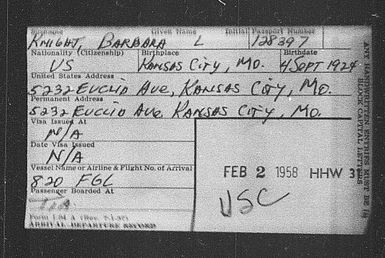 Family Name Given Name Initial Passport Number
KNIGHT, BARBARA L 128397
Nationality (Citizenship) Birthplace Birthdate
US KANSAS CITY, MO. 4 SEPT 1924
United States Address
5232 EUCLID AVE, KANSAS CITY, MO.
Permanent Address
5232 EUCLID AVE, KANSAS CITY, MO.
Visa Issued At
N/A
Date Visa Issued
N/A
Vessel Name or Airline & Flight No. of Arrival
820 FGL
Passenger Boarded At
FEB 2 1958 HHW 37
USC
Form I-94 A (Rev. 7-1-57)
ARRIVAL DEPARTURE RECORD
ANY HANDWRITTEN ENTRIES MUST BE IN
BLOCK CAPITAL LETTERS